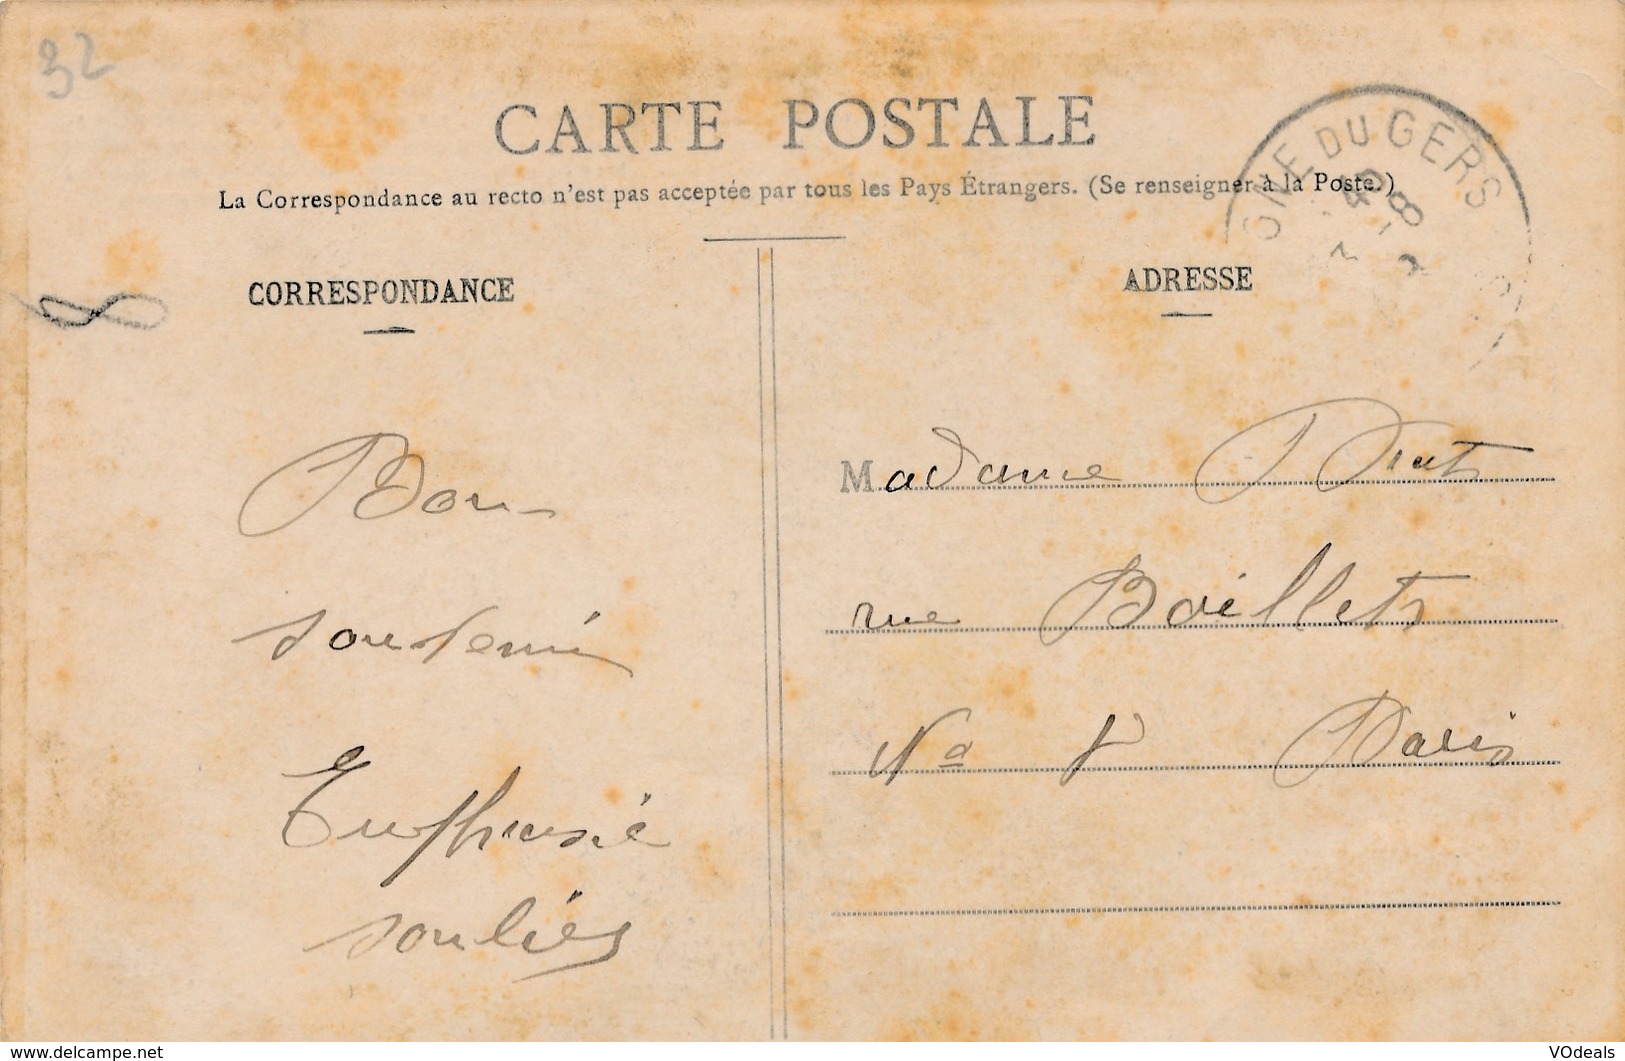 32
CARTE POSTALE
La Correspondance au recto n'est pas acceptée par tous les Pays Étrangers. (Se renseigner à la Poste.)
DU GERS
CORRESPONDANCE
ADRESSE
Bon
souvenir
Euphrasie
Souliès
Madame
rue Boillets
Paris
www.delcampe.net
VOdeals